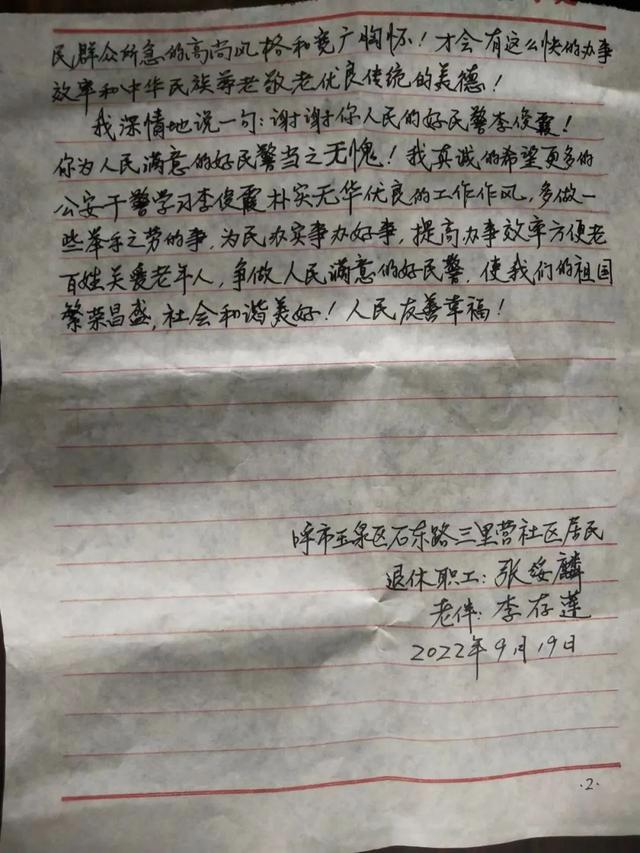 民群众所急的高尚风格和宽广胸怀！才会有这么快的办事
效率和中华民族尊老敬老优良传统的美德！
我深情地说一句：谢谢你人民的好民警李俊霞！
你为人民满意的好民警当之无愧！我真诚的希望更多的
公安干警学习李俊霞朴实无华优良的工作作风，多做一
些举手之劳的事，为民办实事办好事，提高办事效率方便老
百姓关爱老年人，争做人民满意的好民警，使我们的祖国
繁荣昌盛，社会和谐美好！人民友善幸福！
呼市玉泉区石东路三里营社区居民
退休职工：张绥麟
老伴：李存莲
2022年9月19日
·2·